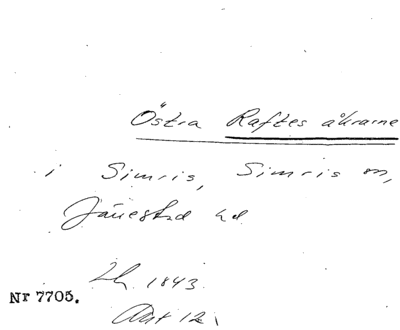 Östra Raftes åkrarne
i Simris, Simris sn,
Järrestad hd
Lh. 1843.
Nr 7705.
Akt 12.